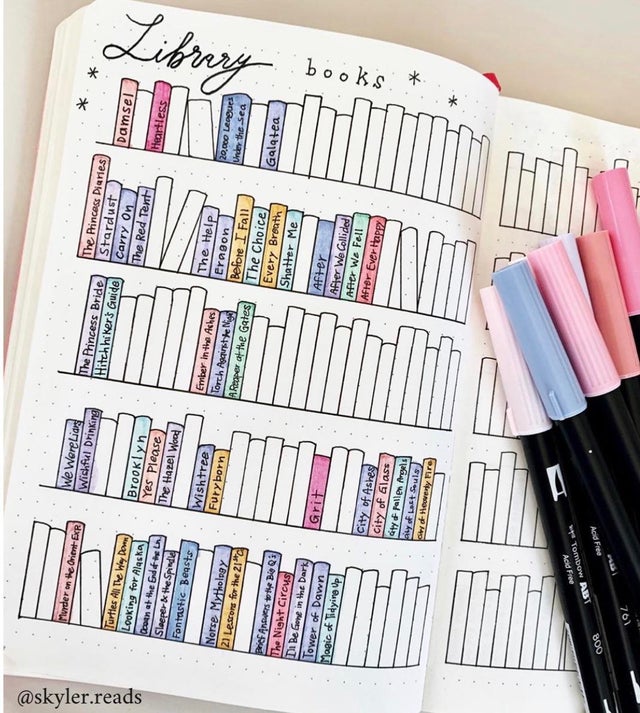 Library books
Damsel
Heartless
20,000 Leagues
Under the Sea
Galatea
The Princess Diaries
Stardust
Carry On
The Red Tent
The Help
Eragon
Before I Fall
The Choice
Every Breath
Shatter Me
After
After We Collided
After We Fell
After Ever Happy
The Princess Bride
Hitchhiker's Guide
Ember in the Ashes
Torch Against the Night
A Reaper at the Gates
We Were Liars
Wishful Drinking
Brooklyn
Yes Please
The Hazel Wood
Wishtree
Furyborn
Grit
City of Ashes
City of Glass
City of Fallen Angels
City of Lost Souls
City of Heavenly Fire
Murder on the Orient Exp.
Turtles All the Way Down
Looking for Alaska
Dawn at the End of the Ln.
Sleeper & the Spindle
Fantastic Beasts
Norse Mythology
21 Lessons for the 21st C
Brief Answers to the Big Q's
The Night Circus
I'll Be Gone in the Dark
Tower of Dawn
Magic of Tidying Up
Acid Free
Tombow ABT
Acid Free
761
800
@skyler.reads